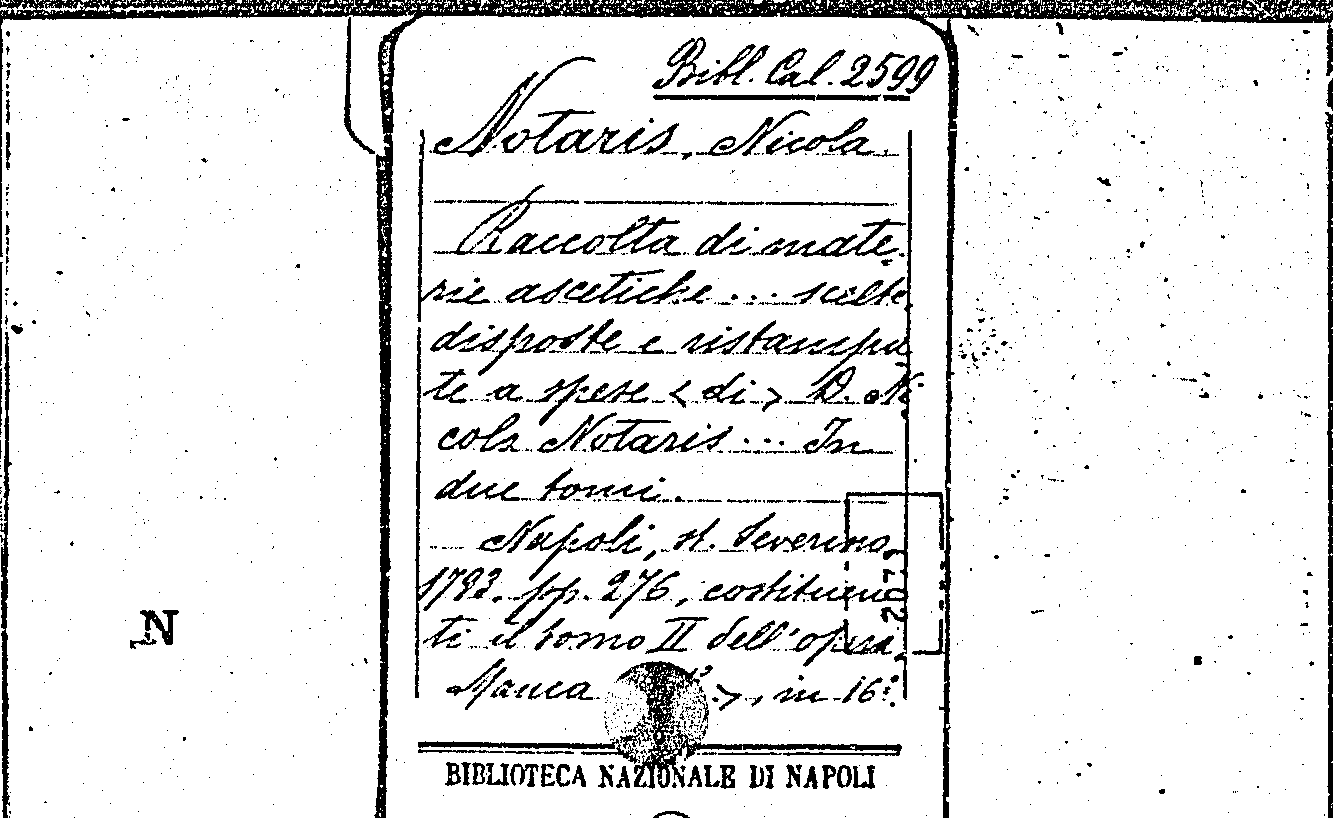 Bibl. Cal. 2599
Notaris, Nicola.
Raccolta di mate-
rie ascetiche ... scelte
disposte e ristampa
te a spese < di > D. Ni-
cola Notaris ... In
due tomi.
Napoli, st. Severino,
1793. pp. 276, costituen
ti il tomo II dell'opera.
Manca >, in 16º.
N
BIBLIOTECA NAZIONALE DI NAPOLI